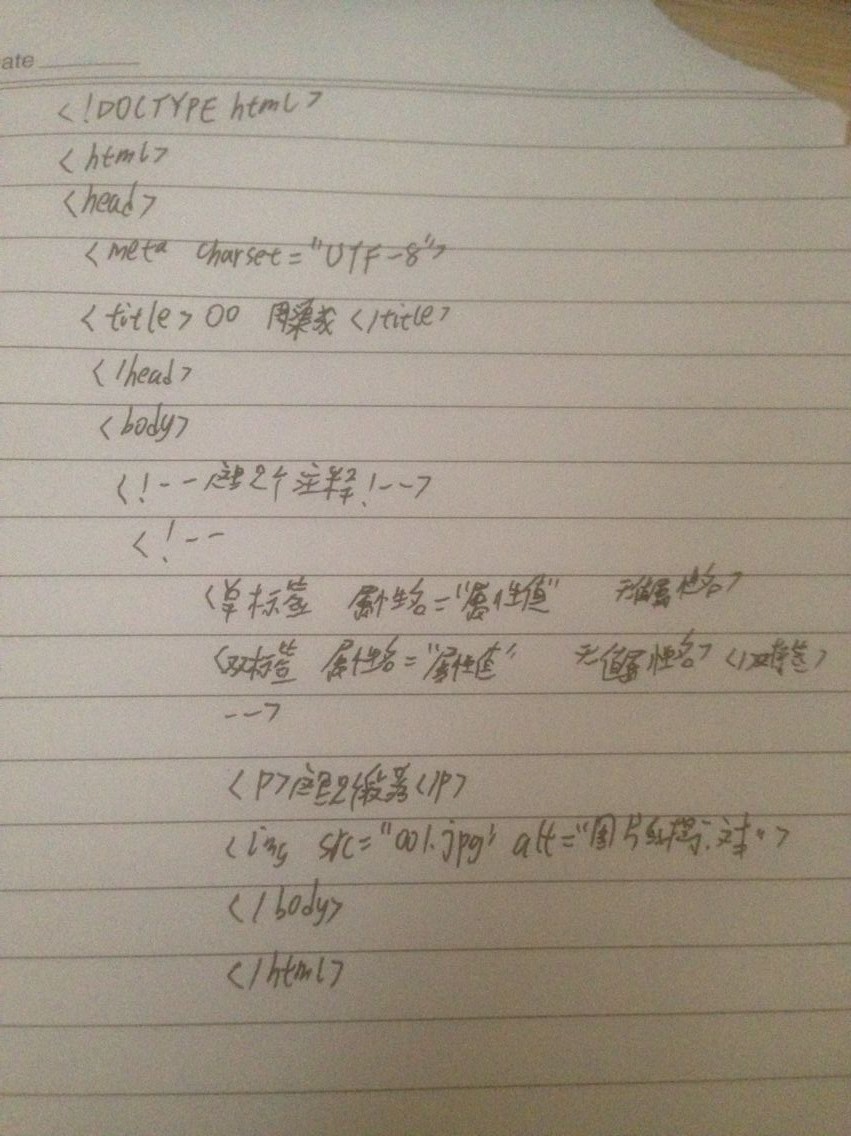 ate
<!DOCTYPE html>
<html>
<head>
<meta charset="UTF-8">
<title>00 </title>
</head>
<body>
<!--这是2个注释!-->
<!--
<单标签 属性名="属性值" 无值属性名>
<双标签 属性名="属性值" 无值属性名></双标签>
-->
<p>这里2个段落</p>
<img src="001.jpg" alt="图片">
</body>
</html>